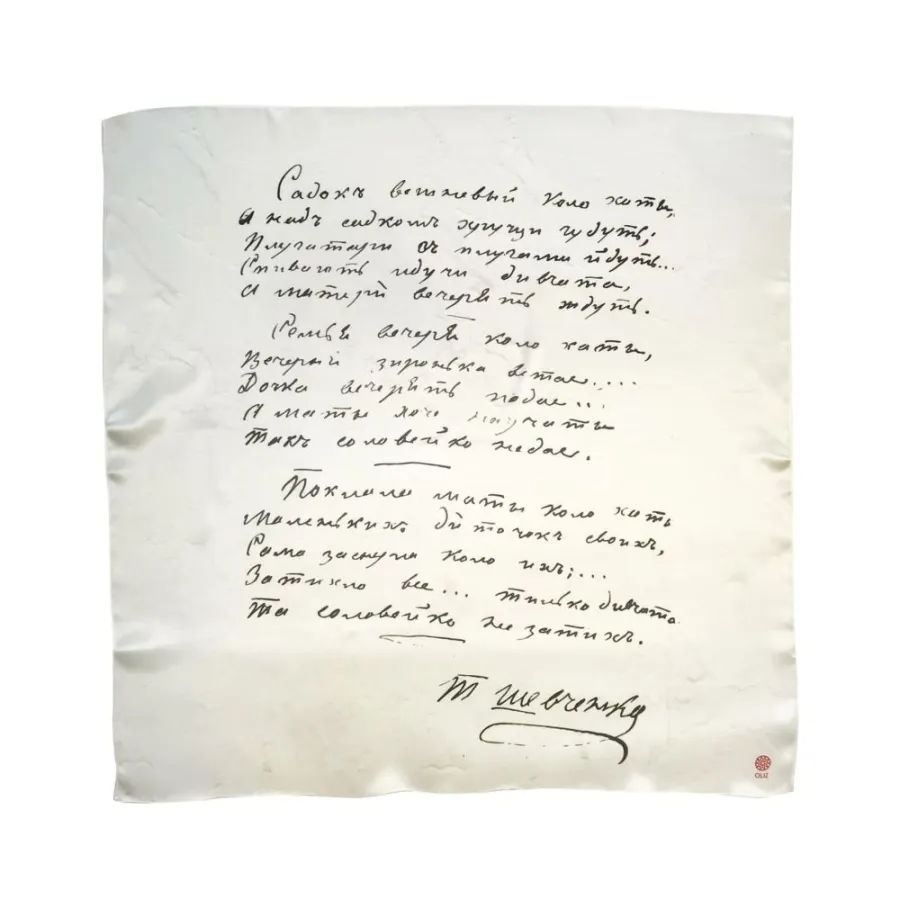 Садокъ вешневый коло хаты,
А надъ садкомъ хрущи гудуть;
Плугатари съ плугами йдуть...
Спивають идучи дивчата,
А матери вечерять ждуть.
Семья вечеря коло хаты,
Вечерня зиронька встае....
Дочка вечерять подае...
А маты хоче научаты
Такъ соловейко недае.
Поклала маты коло хаты
Маленькихъ диточокъ своихъ,
Сама заснула коло ихъ;...
Затихло все... тилько дивчата
Та соловейко не затихъ.
Т Шевченко
OLIZ